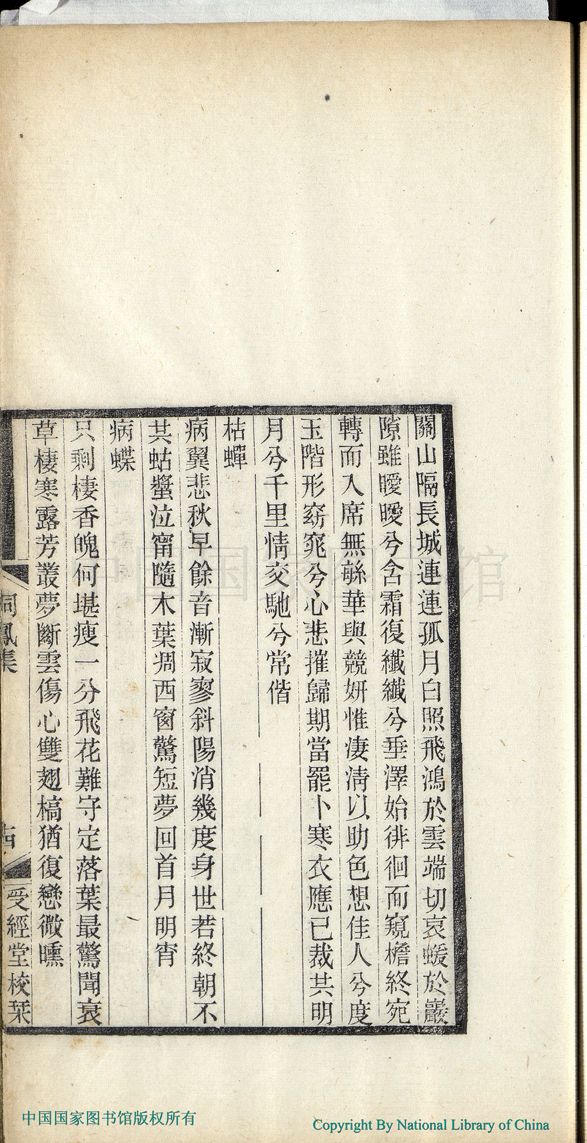 關山隔長城連連孤月白照飛鴻於雲端切哀蝯於巖
隙雖曖曖兮含霜復纖纖兮垂澤始徘徊而窺檐終宛
轉而入席無緐華與競妍惟淒淸以助色想佳人兮度
玉階形窈窕兮心悲摧歸期當罷卜寒衣應已裁共明
月兮千里情交馳兮常偕
枯蟬
病翼悲秋早餘音漸寂寥斜陽消幾度身世若終朝不
共蛄螿泣甯隨木葉凋西窗驚短夢回首月明宵
病蝶
只剩棲香魄何堪瘦一分飛花難守定落葉最驚聞衰
草棲寒露芳叢夢斷雲傷心雙翅槁猶復戀微曛
桐鳳集
十四
受經堂校栞
中国国家图书馆
中国国家图书馆版权所有
Copyright By National Library of China